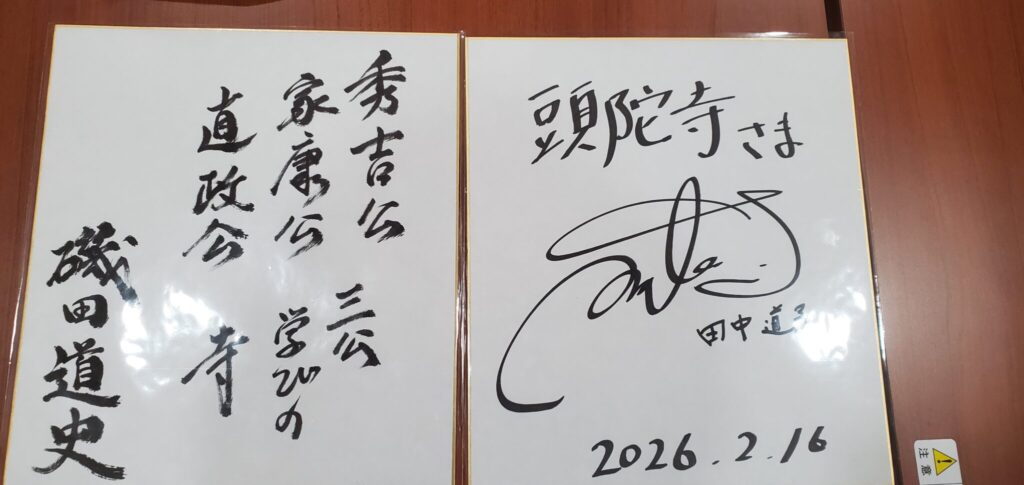 秀吉公 三公
家康公 学びの
直政公 寺
磯田道史
頭陀寺さま
田中 道子
2026.2.16
注意